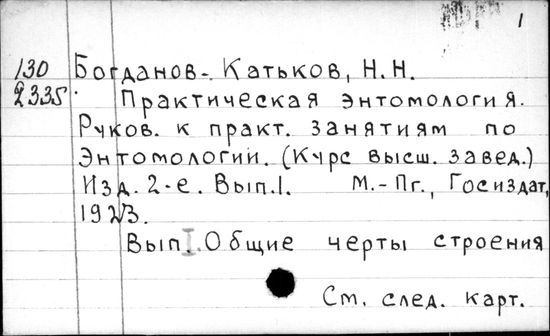 1
130 Богданов-Катьков, Н.Н.
2335 Практическая энтомология.
Руков. к практ. занятиям по
Энтомологии. (Курс высш. завед.)
Изд. 2-е. Вып.1. М.-Пг., Госиздат,
1923.
Вып.I. Общие черты строения
См. след. карт.